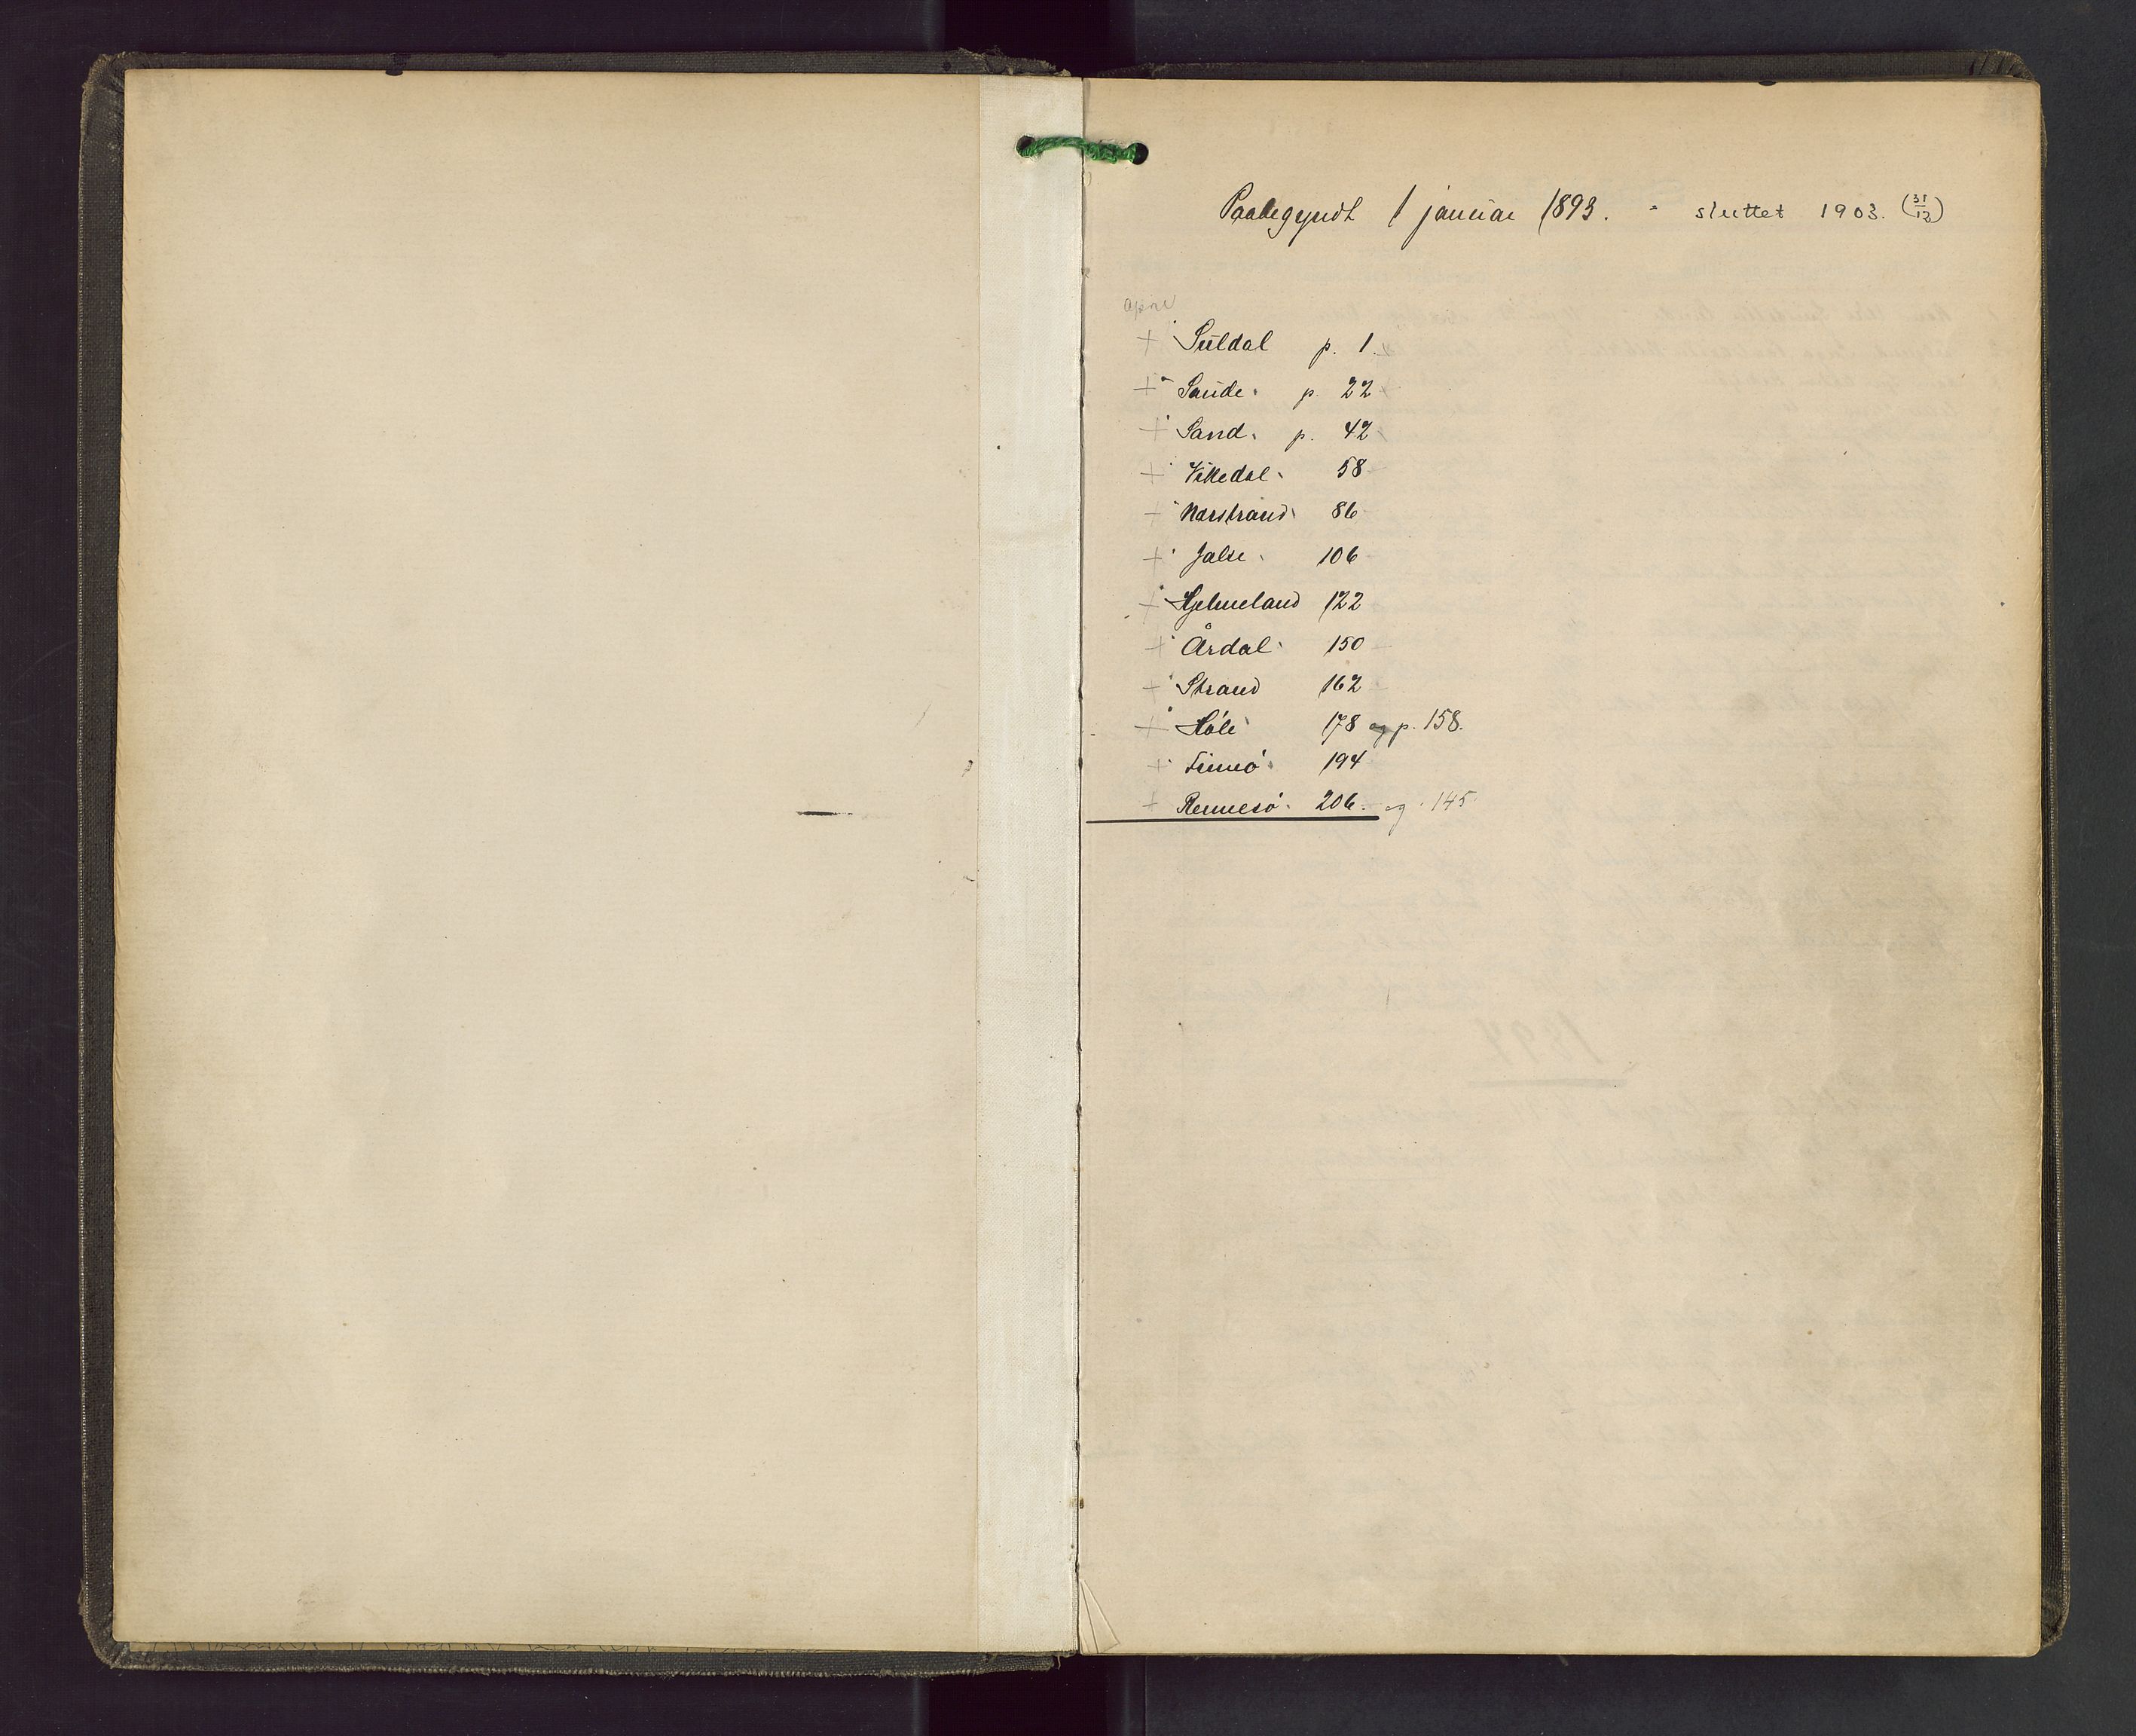 Paabegyndt 1 januar 1893. - sluttet 1903. (31/12)
April
+ Suldal p. 1.
+ Saude. p. 22
+ Sand. p. 42
+ Vikedal. 58
+ Narstrand 86
+ Jalse. 106
+ Hjelmeland 122
+ Årdal 150
+ Strand 162
+ Höle 178 og p. 158.
+ Finnö 194
+ Rennesö. 206. og. 145